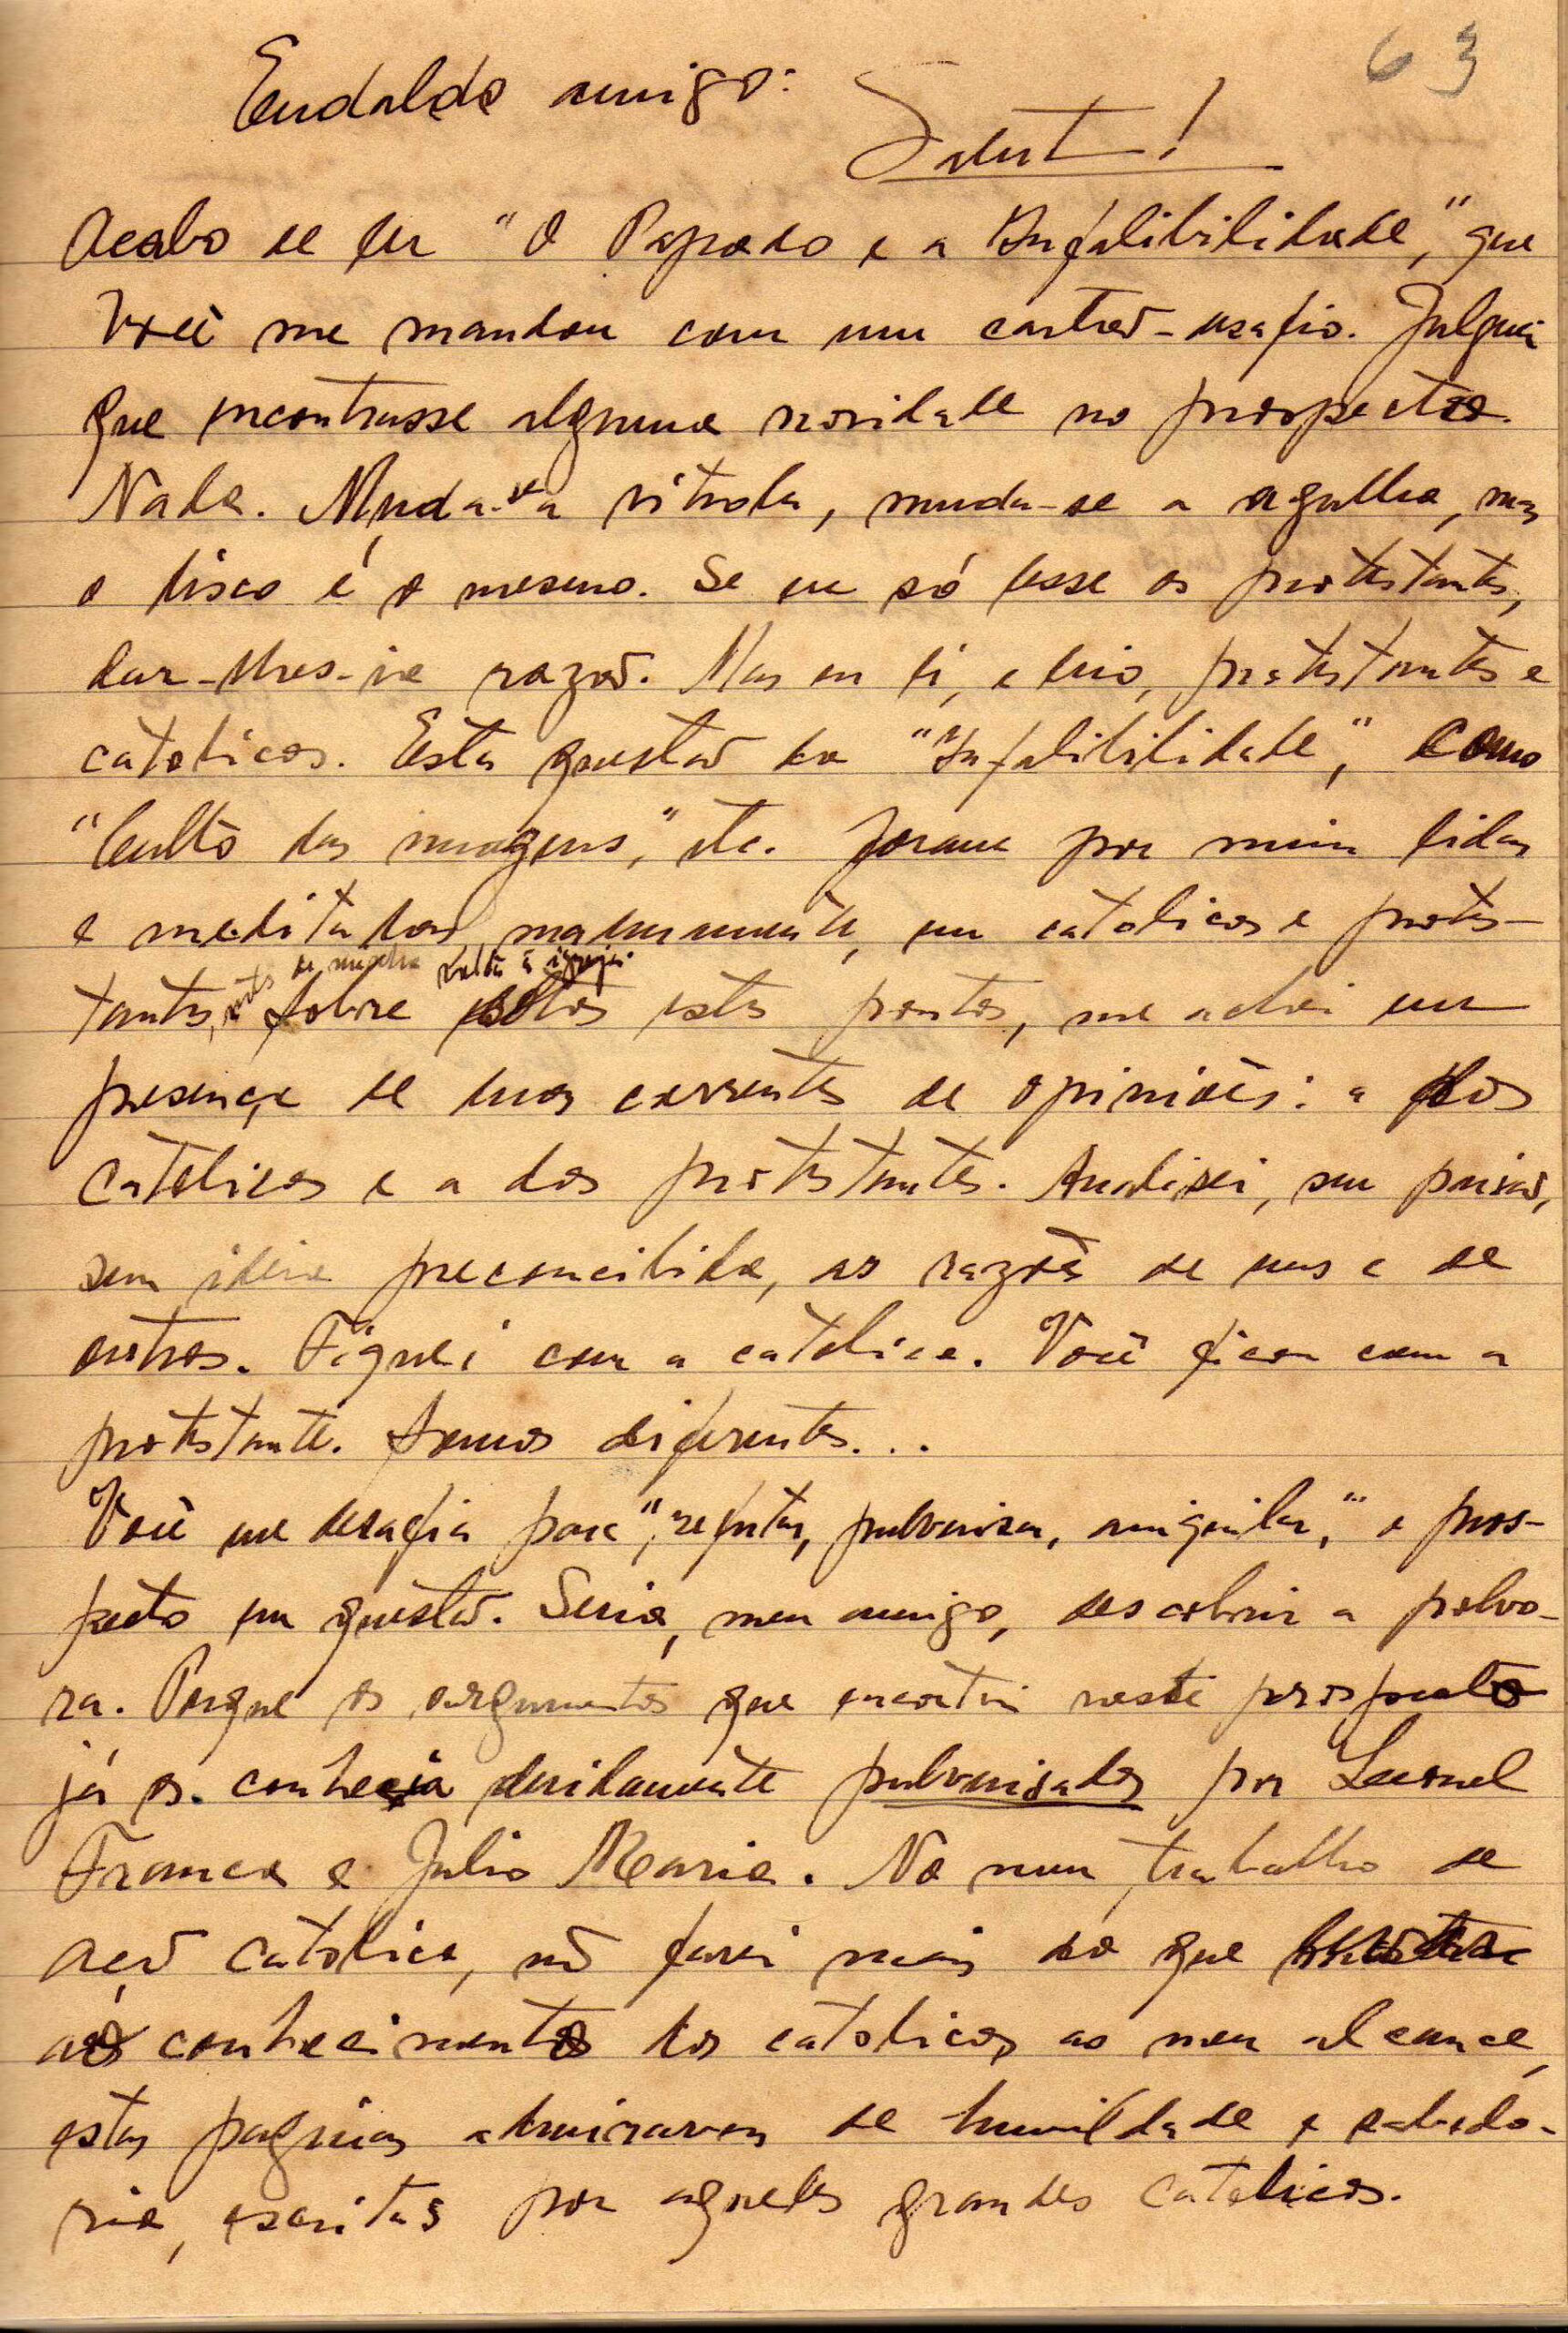 63
Eudaldo amigo:
Salut!
Acabo de ler "O Papado e a Infalibilidade," que
Você me mandou com um cartão-desafio. Julguei
que encontrasse alguma novidade no prospecto.
Nada. Muda-se a vitrola, muda-se a agulha, mas
o disco é o mesmo. Se eu só lesse os protestantes,
dar-lhes-ia razão. Mas eu li, e leio, protestantes e
catolicos. Esta questão da "Infalibilidade," como
"Culto das imagens," etc. foram por mim lidas
e meditadas maduramente, em catolicos e protes-
de minha volta á igreja.
tantes, antes sobre estes pontos, me achei em
presença de duas correntes de opiniões: a dos
Catolicos e a dos protestantes. Analisei, sem paixão,
sem ideia preconcibida, as razões de uns e de
outros. Fiquei com a catolica. Você ficou com a
protestante. Somos diferentes...
Você me desafia para "refutar, pulverisar, aniquilar," o pros-
pecto em questão. Seria, meu amigo, descobrir a polvo-
ra. Porque os argumentos que encontrei neste prospecto
já os conhecia devidamente pulverisados por Leonel
Franca e Julio Maria. No meu trabalho de
ação catolica, não farei mais do que
ao conhecimento dos catolicos, ao meu alcance,
estas paginas admiraveis de humildade e sabedo-
ria, escritas por aqueles grandes Catolicos.